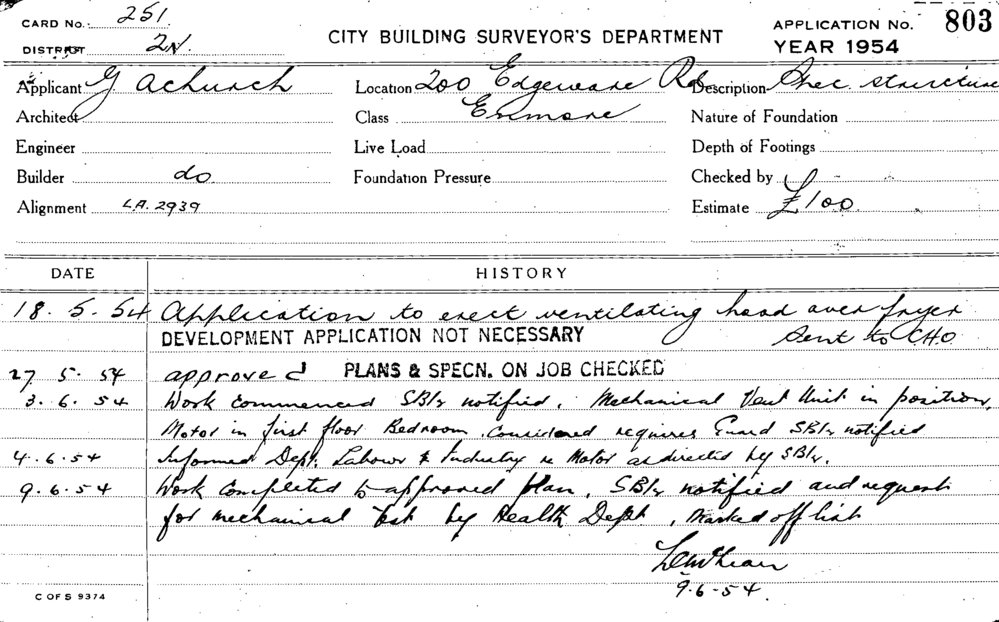 CARD No. 251
DISTRICT 2N.
CITY BUILDING SURVEYOR'S DEPARTMENT
APPLICATION No. 803
YEAR 1954
Applicant G Achurch
Location 200 Edgeware Rd
Description Spec. structure
Architect
Class Enmore
Nature of Foundation
Engineer
Live Load
Depth of Footings
Builder do
Foundation Pressure
Checked by
Alignment L.A. 2939
Estimate £100
DATE HISTORY
18. 5. 54 Application to erect ventilating hood over fryer
DEVELOPMENT APPLICATION NOT NECESSARY Sent to CHO
27 5. 54 approved PLANS & SPECN. ON JOB CHECKED
3. 6. 54 Work commenced SBI notified. Mechanical Vent Unit in position,
Motor in first floor Bedroom. Considered requires Guard SBI notified
4. 6. 54 Informed Dept. Labour & Industry re Motor as directed by SBI.
9. 6. 54 Work completed to approved plan, SBI notified and request
for mechanical Test by Health Dept, Marked off list
9. 6. 54.
C OF S 9374